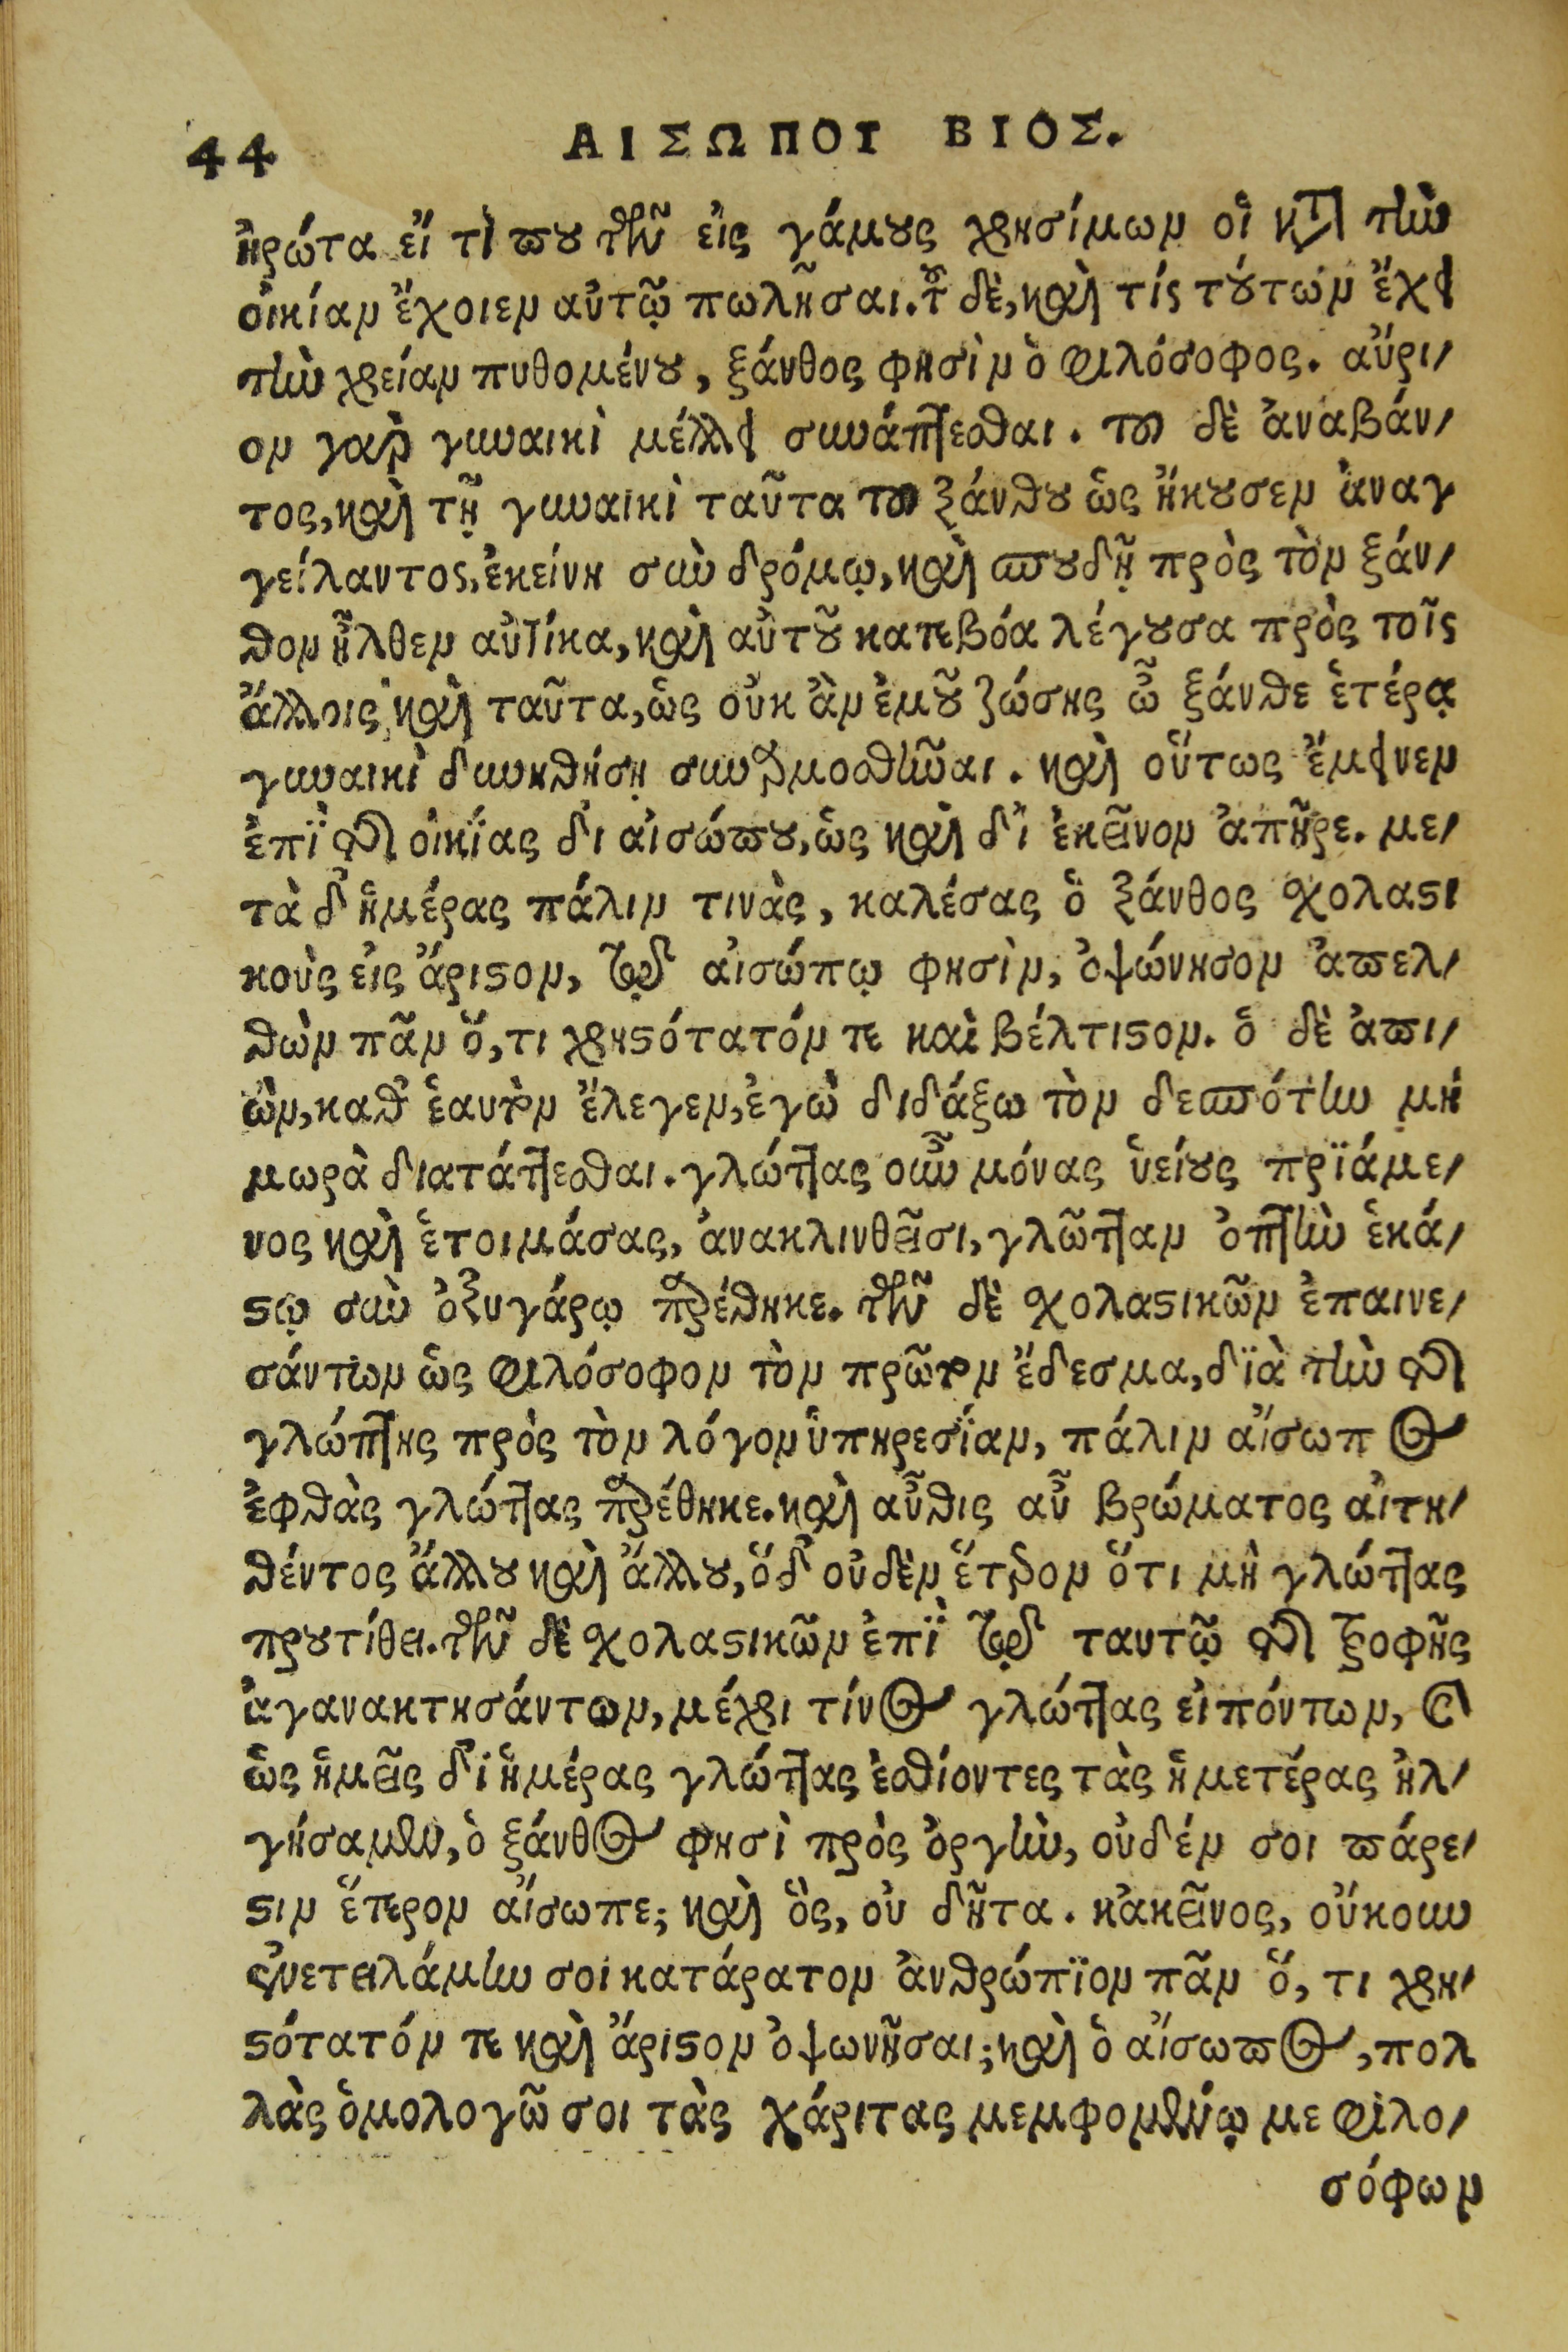 44 ΑΙΣΩΠΟΥ ΒΙΟΣ.
ἠρώτα εἴ τι που τῶν εἰς γάμους χρησίμων οἱ κατὰ τὴν
οἰκίαν ἔχοιεν αὐτῷ πωλῆσαι. τοῦ δὲ, καὶ τίς τούτων ἔχει
τὴν χρείαν πυθομένου, ξάνθος φησὶν ὁ φιλόσοφος. αὔρι/
ον γὰρ γυναικὶ μέλλει συνάπτεσθαι. τοῦ δὲ ἀναβάν/
τος, καὶ τῇ γυναικὶ ταῦτα τοῦ ξάνθου ὡς ἤκουσεν ἀναγ
γείλαντος, ἐκείνη σὺν δρόμῳ, καὶ σπουδῇ πρὸς τὸν ξάν/
θον ἦλθεν αὐτίκα, καὶ αὐτοῦ κατεβόα λέγουσα πρὸς τοῖς
ἄλλοις καὶ ταῦτα, ὡς οὐκ ἂν ἐμοῦ ζώσης ὦ ξάνθε ἑτέρᾳ
γυναικὶ δυνηθήσῃ συναρμοσθῆναι. καὶ οὕτως ἔμεινεν
ἐπὶ τῆς οἰκίας δι αἰσώπου, ὡς καὶ δι ἐκεῖνον ἀπῆρε. με/
τὰ δ' ἡμέρας πάλιν τινὰς, καλέσας ὁ ξάνθος σχολαστι
κοὺς εἰς ἄριστον, τῷ αἰσώπῳ φησὶν, ὀψώνησον ἀπελ/
θὼν πᾶν ὅ, τι χρηστότατόν τε καὶ βέλτιστον. ὁ δὲ ἀπι/
ὼν, καθ' ἑαυτὸν ἔλεγεν, ἐγὼ διδάξω τὸν δεσπότην μὴ
μωρὰ διατάττεσθαι. γλώττας οὖν μόνας ὑείους πριάμε/
νος καὶ ἑτοιμάσας, ἀνακλινθεῖσι, γλῶτταν ὀπτὴν ἑκά/
στῳ σὺν ὀξυγάρῳ παρέθηκε. τῶν δὲ σχολαστικῶν ἐπαινε/
σάντων ὡς φιλόσοφον τὸν πρῶτον ἔδεσμα, διὰ τὴν τῆς
γλώττης πρὸς τὸν λόγον ὑπηρεσίαν, πάλιν αἴσωπος
ἐφθὰς γλώττας παρέθηκε. καὶ αὖθις αὖ βρώματος αἰτη/
θέντος ἄλλου καὶ ἄλλου, ὅδ' οὐδὲν ἕτερον ὅτι μὴ γλώττας
προυτίθει. τῶν δὲ σχολαστικῶν ἐπὶ τῷ ταυτῷ τῆς τροφῆς
ἀγανακτησάντων, μέχρι τίνος γλώττας εἰπόντων, καὶ
ὡς ἡμεῖς δι ἡμέρας γλώττας ἐσθίοντες τὰς ἡμετέρας ἠλ/
γήσαμεν, ὁ ξάνθος φησὶ πρὸς ὀργὴν, οὐδέν σοι πάρε/
στιν ἕτερον αἴσωπε; καὶ ὃς, οὐ δῆτα. κἀκεῖνος, οὔκουν
ἐνετειλάμην σοι κατάρατον ἀνθρώπιον πᾶν ὅ, τι χρη/
στότατόν τε καὶ ἄριστον ὀψωνῆσαι; καὶ ὁ αἴσωπος, πολ
λὰς ὁμολογῶ σοι τὰς χάριτας μεμφομένῳ με φιλο/
σόφων